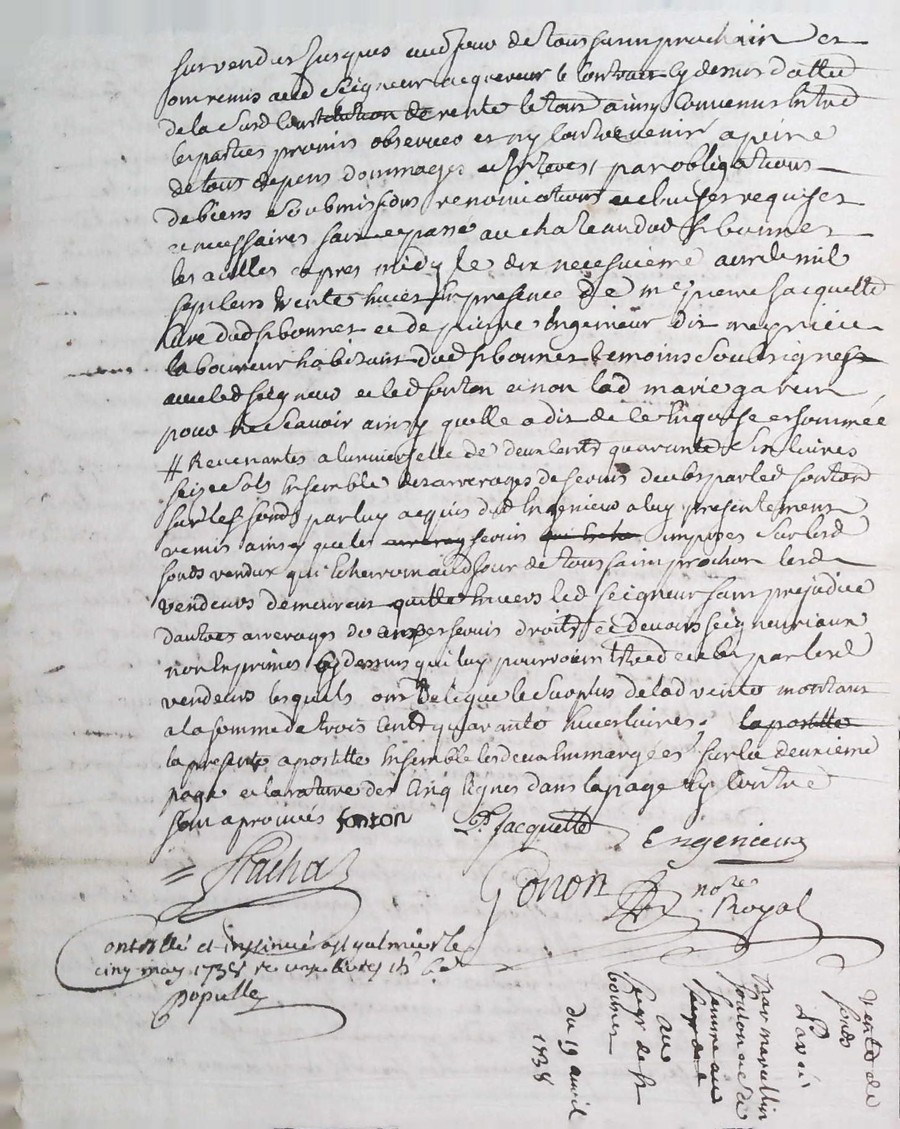 survendus jusques aud jour de toussaint prochain et
ont remis aud seigneur acquereur le contrat cy dessus datté
de la susd constitution de rente le tout ainsy convenus entre
les parties promis observer et ny contrevenir a peine
de tous depens dommages et interest par obligations
de biens soubmissions renonciations et clauses requises
et necessaires fait et passé au chateau dud st bonnet
les apres midy le dix neufvieme avril mil
sept cent trente huict en presence de me pierre Jacquette
curé dud st bonnet et de pierre Ingenieur dit
laboureur habitant dud st bonnet temoins soubsignes
avec led seigneur et led fonton et non lad marie
pour ne scavoir ainsy quelle a dit de ce enquise et sommée
# Revenantes a luniverselle de deux cents quarante six livres
seize sols ensemble des arrerages de servis deubs par led fonton
sur les fonds par luy acquis dud Ingenieur a luy presentement
remis ainsy que les servis imposes sur lesd
fonds vendus qui echerront aud jour de toussaint prochain lesd
vendeurs demeurent quitte envers led seigneur sans prejudice
dautres arrerages de servis droits et devoirs seigneuriaux
non exprimes cy dessus qui luy pourroient etre deubs par lesd
vendeurs lesquels ont delegué le surplus de lad vente montant
a la somme de trois cents quarante huict livres, la postille
la presente apostille ensemble les deux en marge et sur la deuxieme
page et la rature des cinq lignes dans la page cy contre
sont aprouvés fonton P. Jacquette Engenieux
Flachat Gonon nore Royal
Controllé et insinué a st galmier le
cinq may 1738 recu
Populle
Vente de
fonds
Passé
par marcellin
fonton et sa
femme au
segr de
au
segr de st
bonnet
du 19 avril
1738